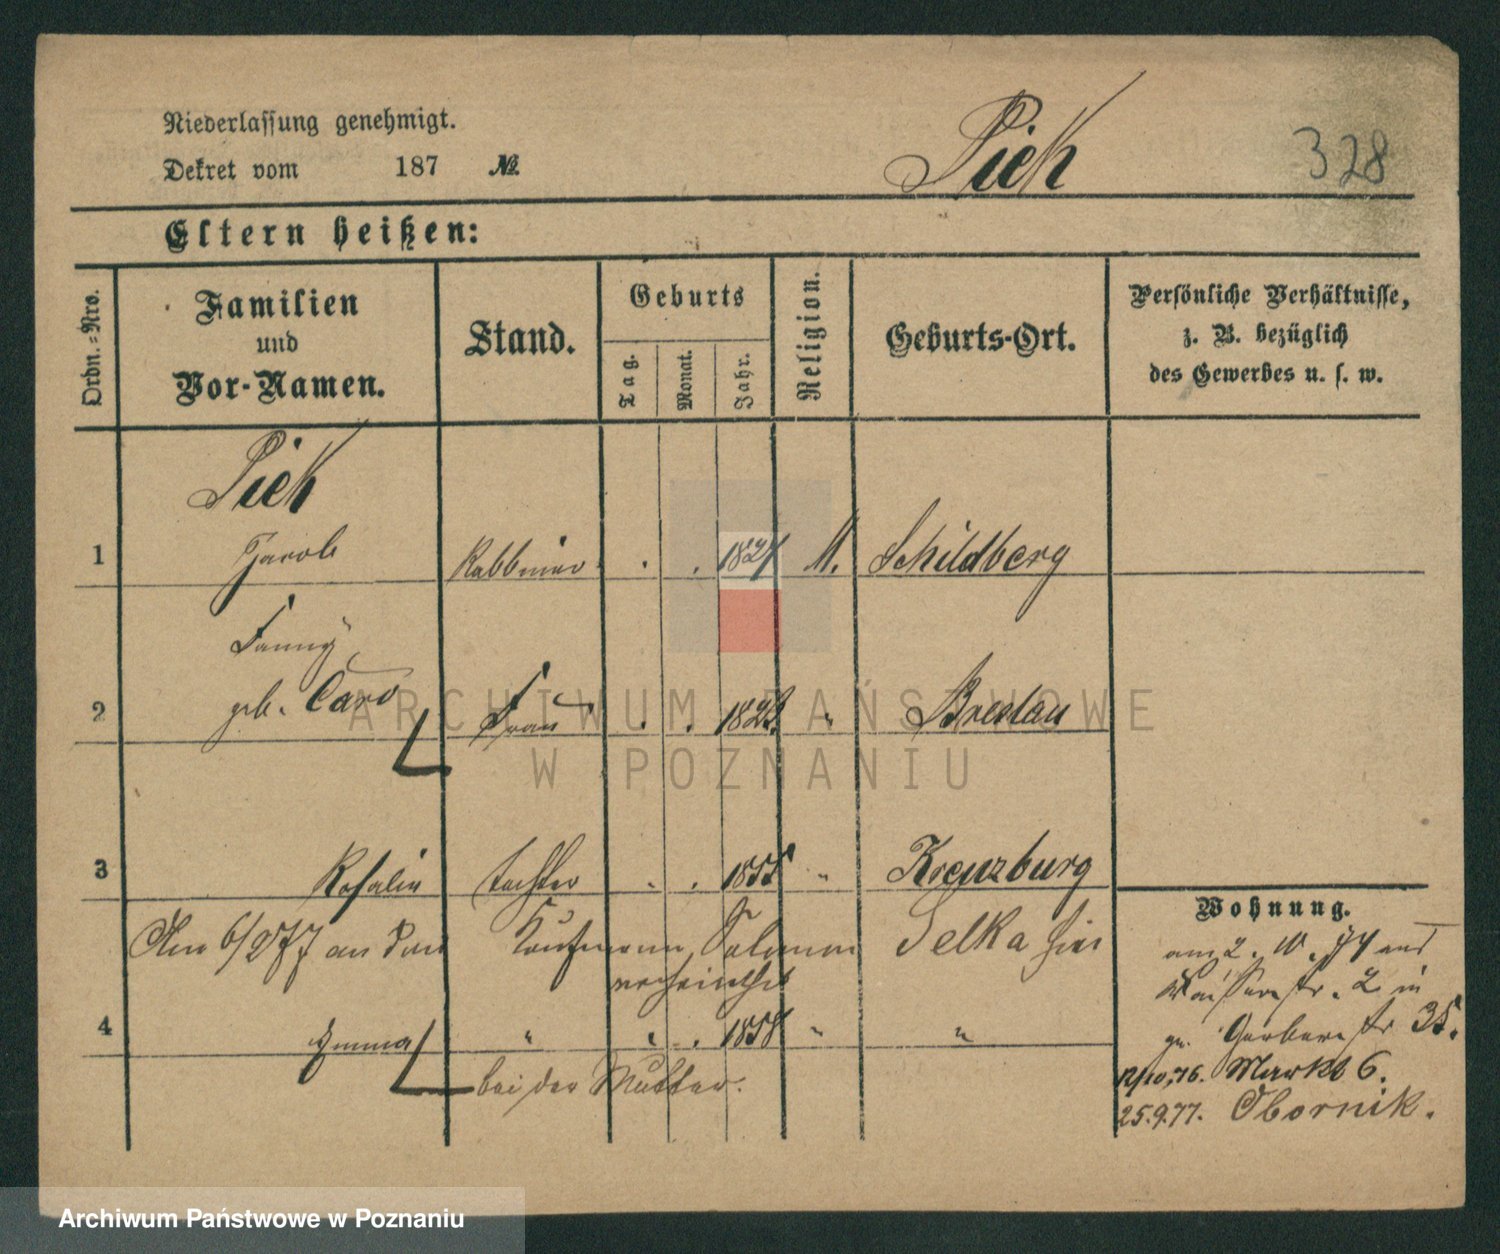 Niederlassung genehmigt.
Dekret vom 187 №
Pick
328
Eltern heißen:
Ordn.=Nro.
Familien
und
Vor-Namen.
Stand.
Geburts
Tag.
Monat.
Jahr.
Religion.
Geburts-Ort.
Persönliche Verhältnisse,
z. B. bezüglich
des Gewerbes u. s. w.
Pick
1 Jacob Rabbiner . . 1827 M. Schildberg
Fanny
2 geb. Caro Frau . . 1823 " Breslau
3 Rosalie Tochter . . 1855 " Kreuzburg
Am 6/2 77 an den Kaufmann Salomon Selka hier
verheirathet
4 Emma " . . 1858 " "
bei der Mutter.
Wohnung.
am 2. 10. 74 aus
Wasserstr. 2 in
Gerberstr 35.
12/10.76. Markt 6.
25.9.77. Obornik.
ARCHIWUM PAŃSTWOWE
W POZNANIU
Archiwum Państwowe w Poznaniu